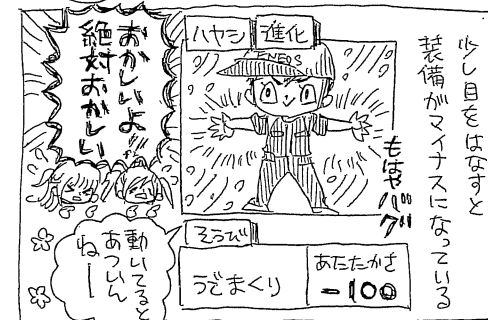 少し目をはなすと
装備がマイナスになっている
ハヤシ
進化
ENEOS
もはやバグ
おかしいよ
絶対おかしい
そうび
うでまくり
あたたかさ
-100
動いてると
あついん
ねー